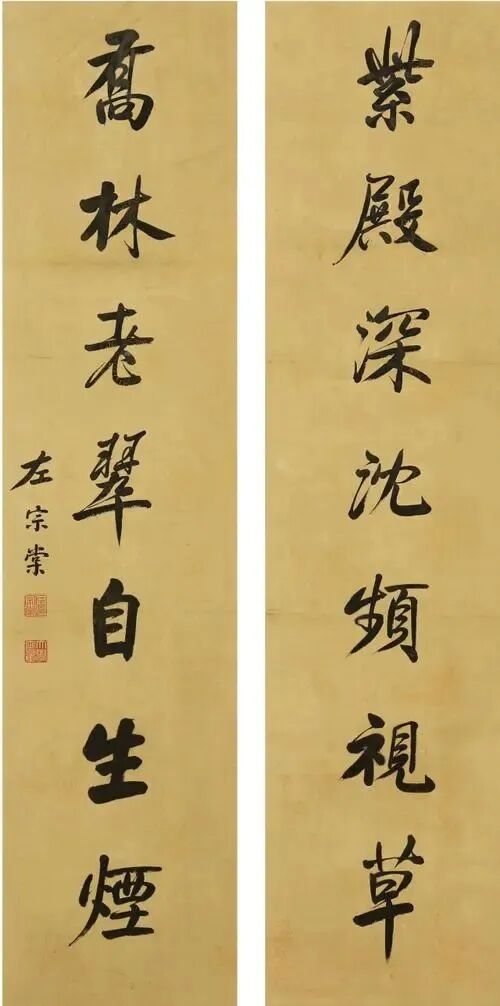 紫殿深沈頻視草
喬林老翠自生煙
左宗棠